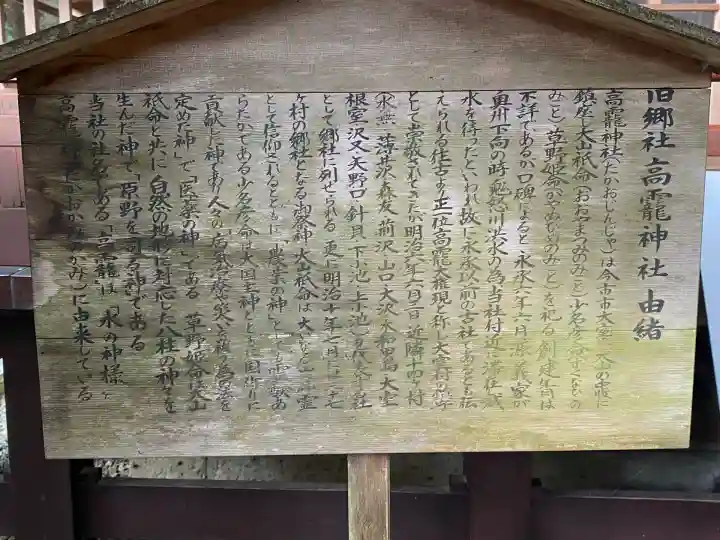 旧郷社 高龗神社 由緒
高龗神社(たかおじんじゃ)は今市市大室一八〇の霊に
鎮座し大山祇命(おおやまつみのみこと)少名彦命(すくなひこのみ
こと)草野姫命(かやのひめのみこと)を祀る 創建年号は
不詳であるが口碑によると永承六年六月 源義家が
奥州下向の時 鬼怒川洪水の為 当社付近に滞在 減
水を待ったといわれ故に永承以前の古社であると伝
えられる 往古より正一位高龗大権現と称し大室村の
として崇敬されてきた 明治六年六月一日 近隣十四ケ村
薄井沢 森友 前沢 山口 大沢 大和田島 大室
根室 沢又 矢野口 針貝 下小池 上小池
として郷社に列せられる 更に明治十年七月には二十七
ケ村の郷社となる 御祭神 大山祇命は大いなる山の霊
として信仰されるとともに「農業の神」としても霊験あ
らたかである 少名彦命は大国主神とともに国作りに
貢献した神であり人々の病気治療や災いを祓う為の法を
定めた神で「医薬の神」である 草野姫命は大山
祇命と共に自然の地形に対応した八柱の神々を
生んだ神で「原野を司る神」である
当社の社名である「高龗」は「水の神様」と
高龗 かおかみのかみ)に由来している